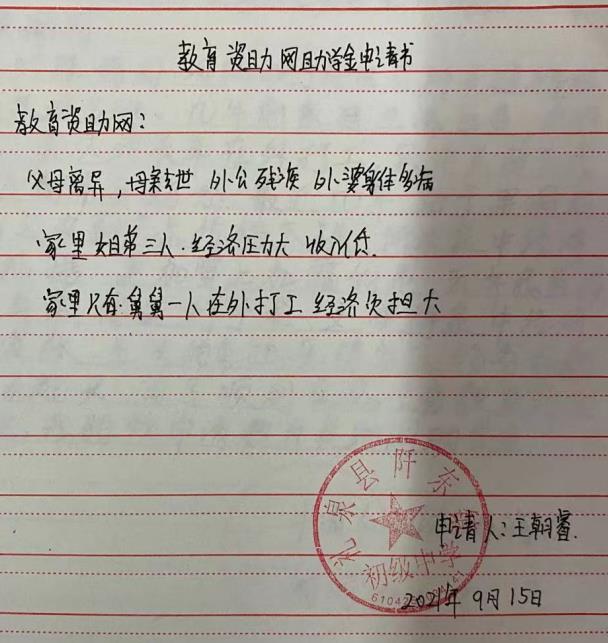 教育资助网助学金申请书
教育资助网：
父母离异，母亲去世 外公残疾 外婆身体多病
家里姐弟三人．经济压力大 收入低．
家里只有舅舅一人在外打工 经济负担大
礼泉县阡东
初级中学
申请人：王朝睿．
2021年9月15日